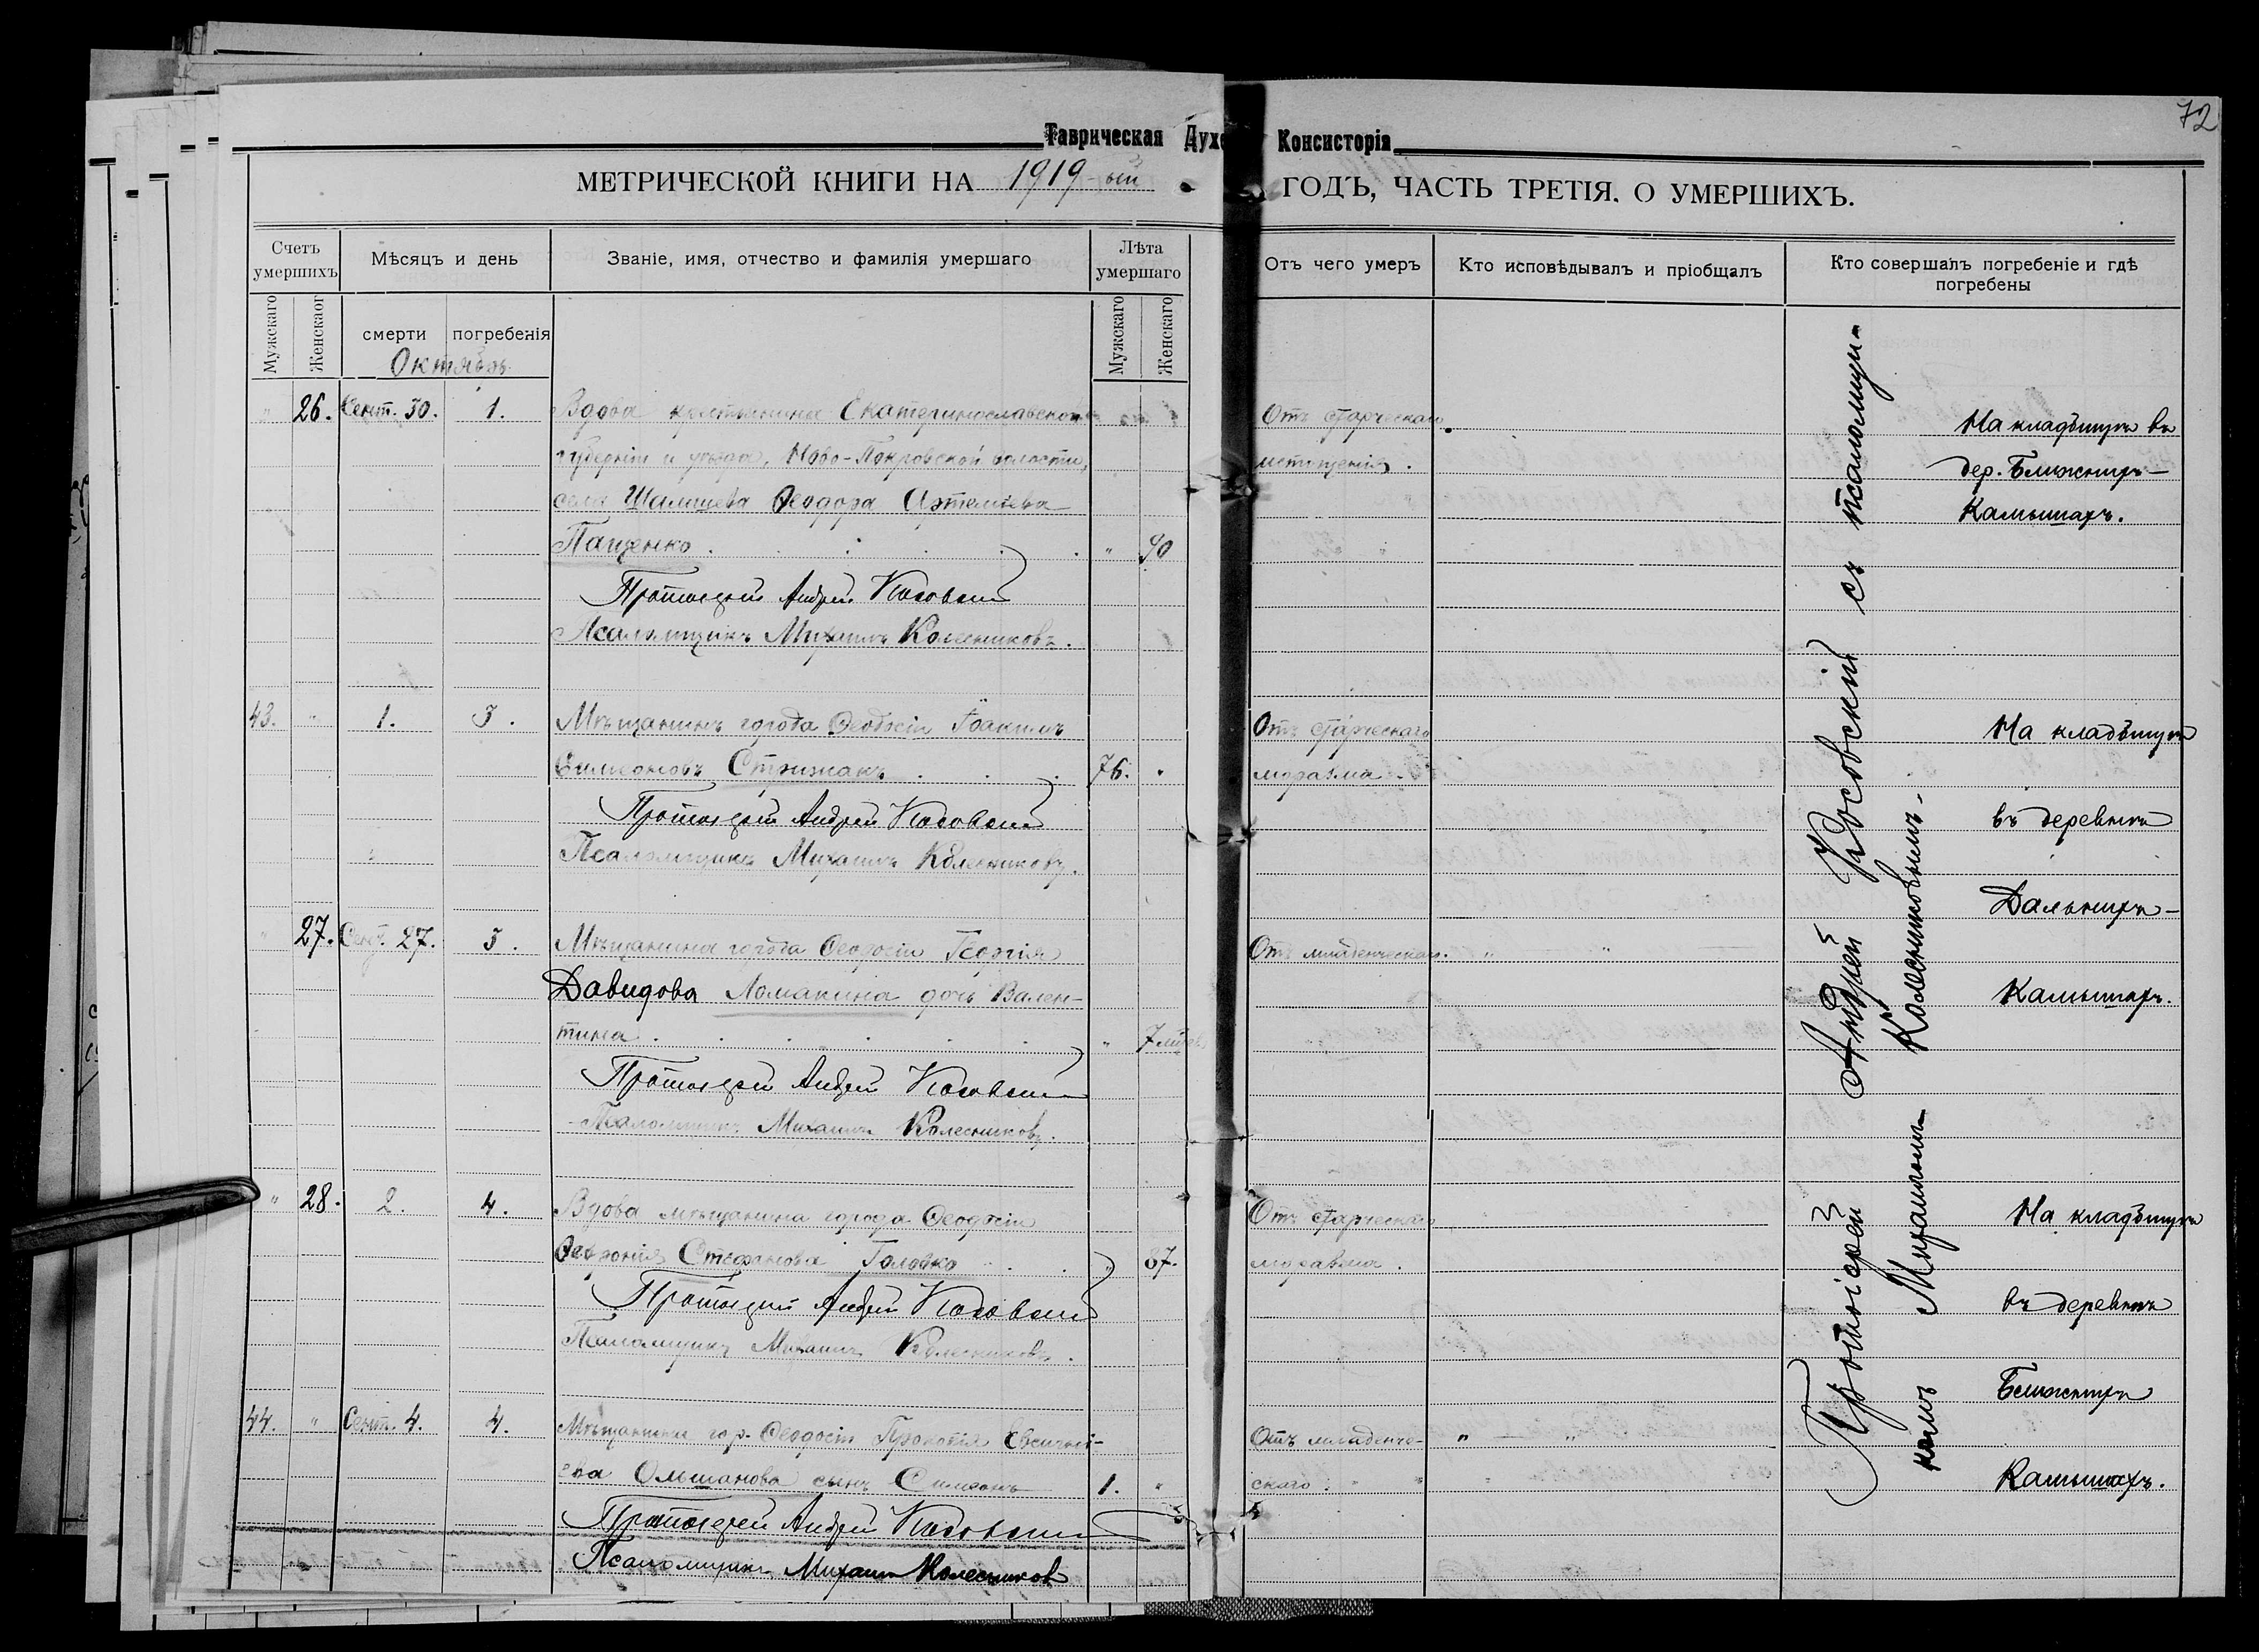 72
Таврическая Духо Консисторія
МЕТРИЧЕСКОЙ КНИГИ НА 1919-ый ГОДЪ, ЧАСТЬ ТРЕТІЯ. О УМЕРШИХЪ.
Счетъ умершихъ
Мѣсяцъ и день
Званіе, имя, отчество и фамилія умершаго
Лѣта умершаго
Отъ чего умеръ
Кто исповѣдывалъ и пріобщалъ
Кто совершалъ погребеніе и гдѣ погребены
Мужскаго
Женскаог
смерти
погребенія
Мужскаго
Женскаго
Октябрь
" 26. Сент. 30. 1. Вдова крестьянина Екатеринославской
губерніи и уѣзда, Ново-Покровской волости,
села Ѳеодора Артемьева
Пащенко . . . . . " 90
Отъ старческаго
истощенія.
На кладбищѣ въ
дер. Ближнихъ-
Камышахъ.
Протоіерей Андрей Косовскій
Псаломщикъ Михаилъ Колесниковъ.
43. " 1. 3. Мѣщанинъ города Ѳеодосіи Іоакимъ
Симеоновъ Стрижакъ . . . 76. "
Отъ старческаго
маразма.
На кладбищѣ
въ деревнѣ
Дальнихъ-
Камышахъ.
Протоіерей Андрей Косовскій
Псаломщикъ Михаилъ Колесниковъ.
" 27. Сент. 27. 3. Мѣщанина города Ѳеодосіи Георгія
Давидова Ломакина дочь Вален-
тина . . . . . " 7 мѣсяц
Отъ младенческаго. " "
Протоіерей Андрей Косовскій
Псаломщикъ Михаилъ Колесниковъ.
" 28. 2. 4. Вдова мѣщанина города Ѳеодосіи
Стефанова Головко . . " 87.
Отъ старческаго
маразма.
На кладбищѣ
въ деревнѣ
Ближнихъ
Камышахъ.
Протоіерей Андрей Косовскій
Псаломщикъ Михаилъ Колесниковъ.
44. " Сент. 4. 4. Мѣщанина гор. Ѳеодосіи Прокопія
Ольшанова сынъ Симеонъ 1. "
Отъ младенче-
скаго. " "
Протоіерей Андрей Косовскій
Псаломщикъ Михаилъ Колесников
Протоіерей Андрей Косовскій съ псаломщи-
комъ Михаиломъ Колесниковымъ.